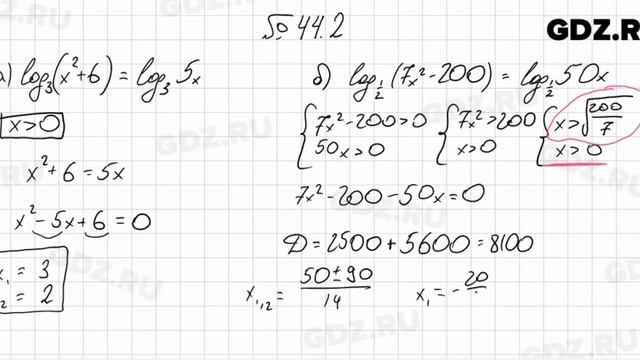 № 44.2
GDZ.R
а) log₃(x²+6) = log₃ 5x
x>0
x²+6 = 5x
x²-5x+6=0
x₁ = 3
x₂ = 2
б) log_{1/2}(7x²-200) = log_{1/2} 50x
{7x²-200>0 {7x²>200 {x>√(200/7)
{50x>0 {x>0 {x>0
7x²-200-50x=0
D=2500+5600=8100
x₁,₂ = (50±90)/14 x₁ = -20